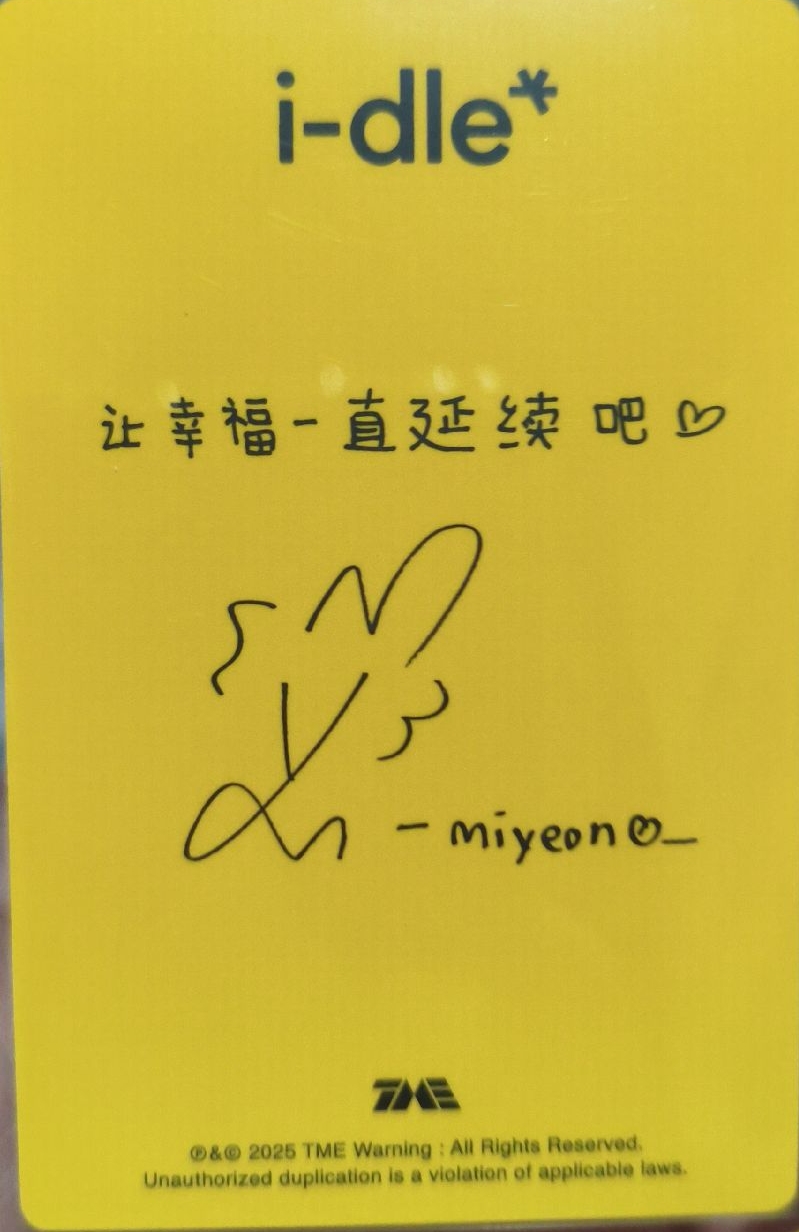 i-dle*
让幸福一直延续吧♡
- miyeon
TME
℗&© 2025 TME Warning : All Rights Reserved.
Unauthorized duplication is a violation of applicable laws.